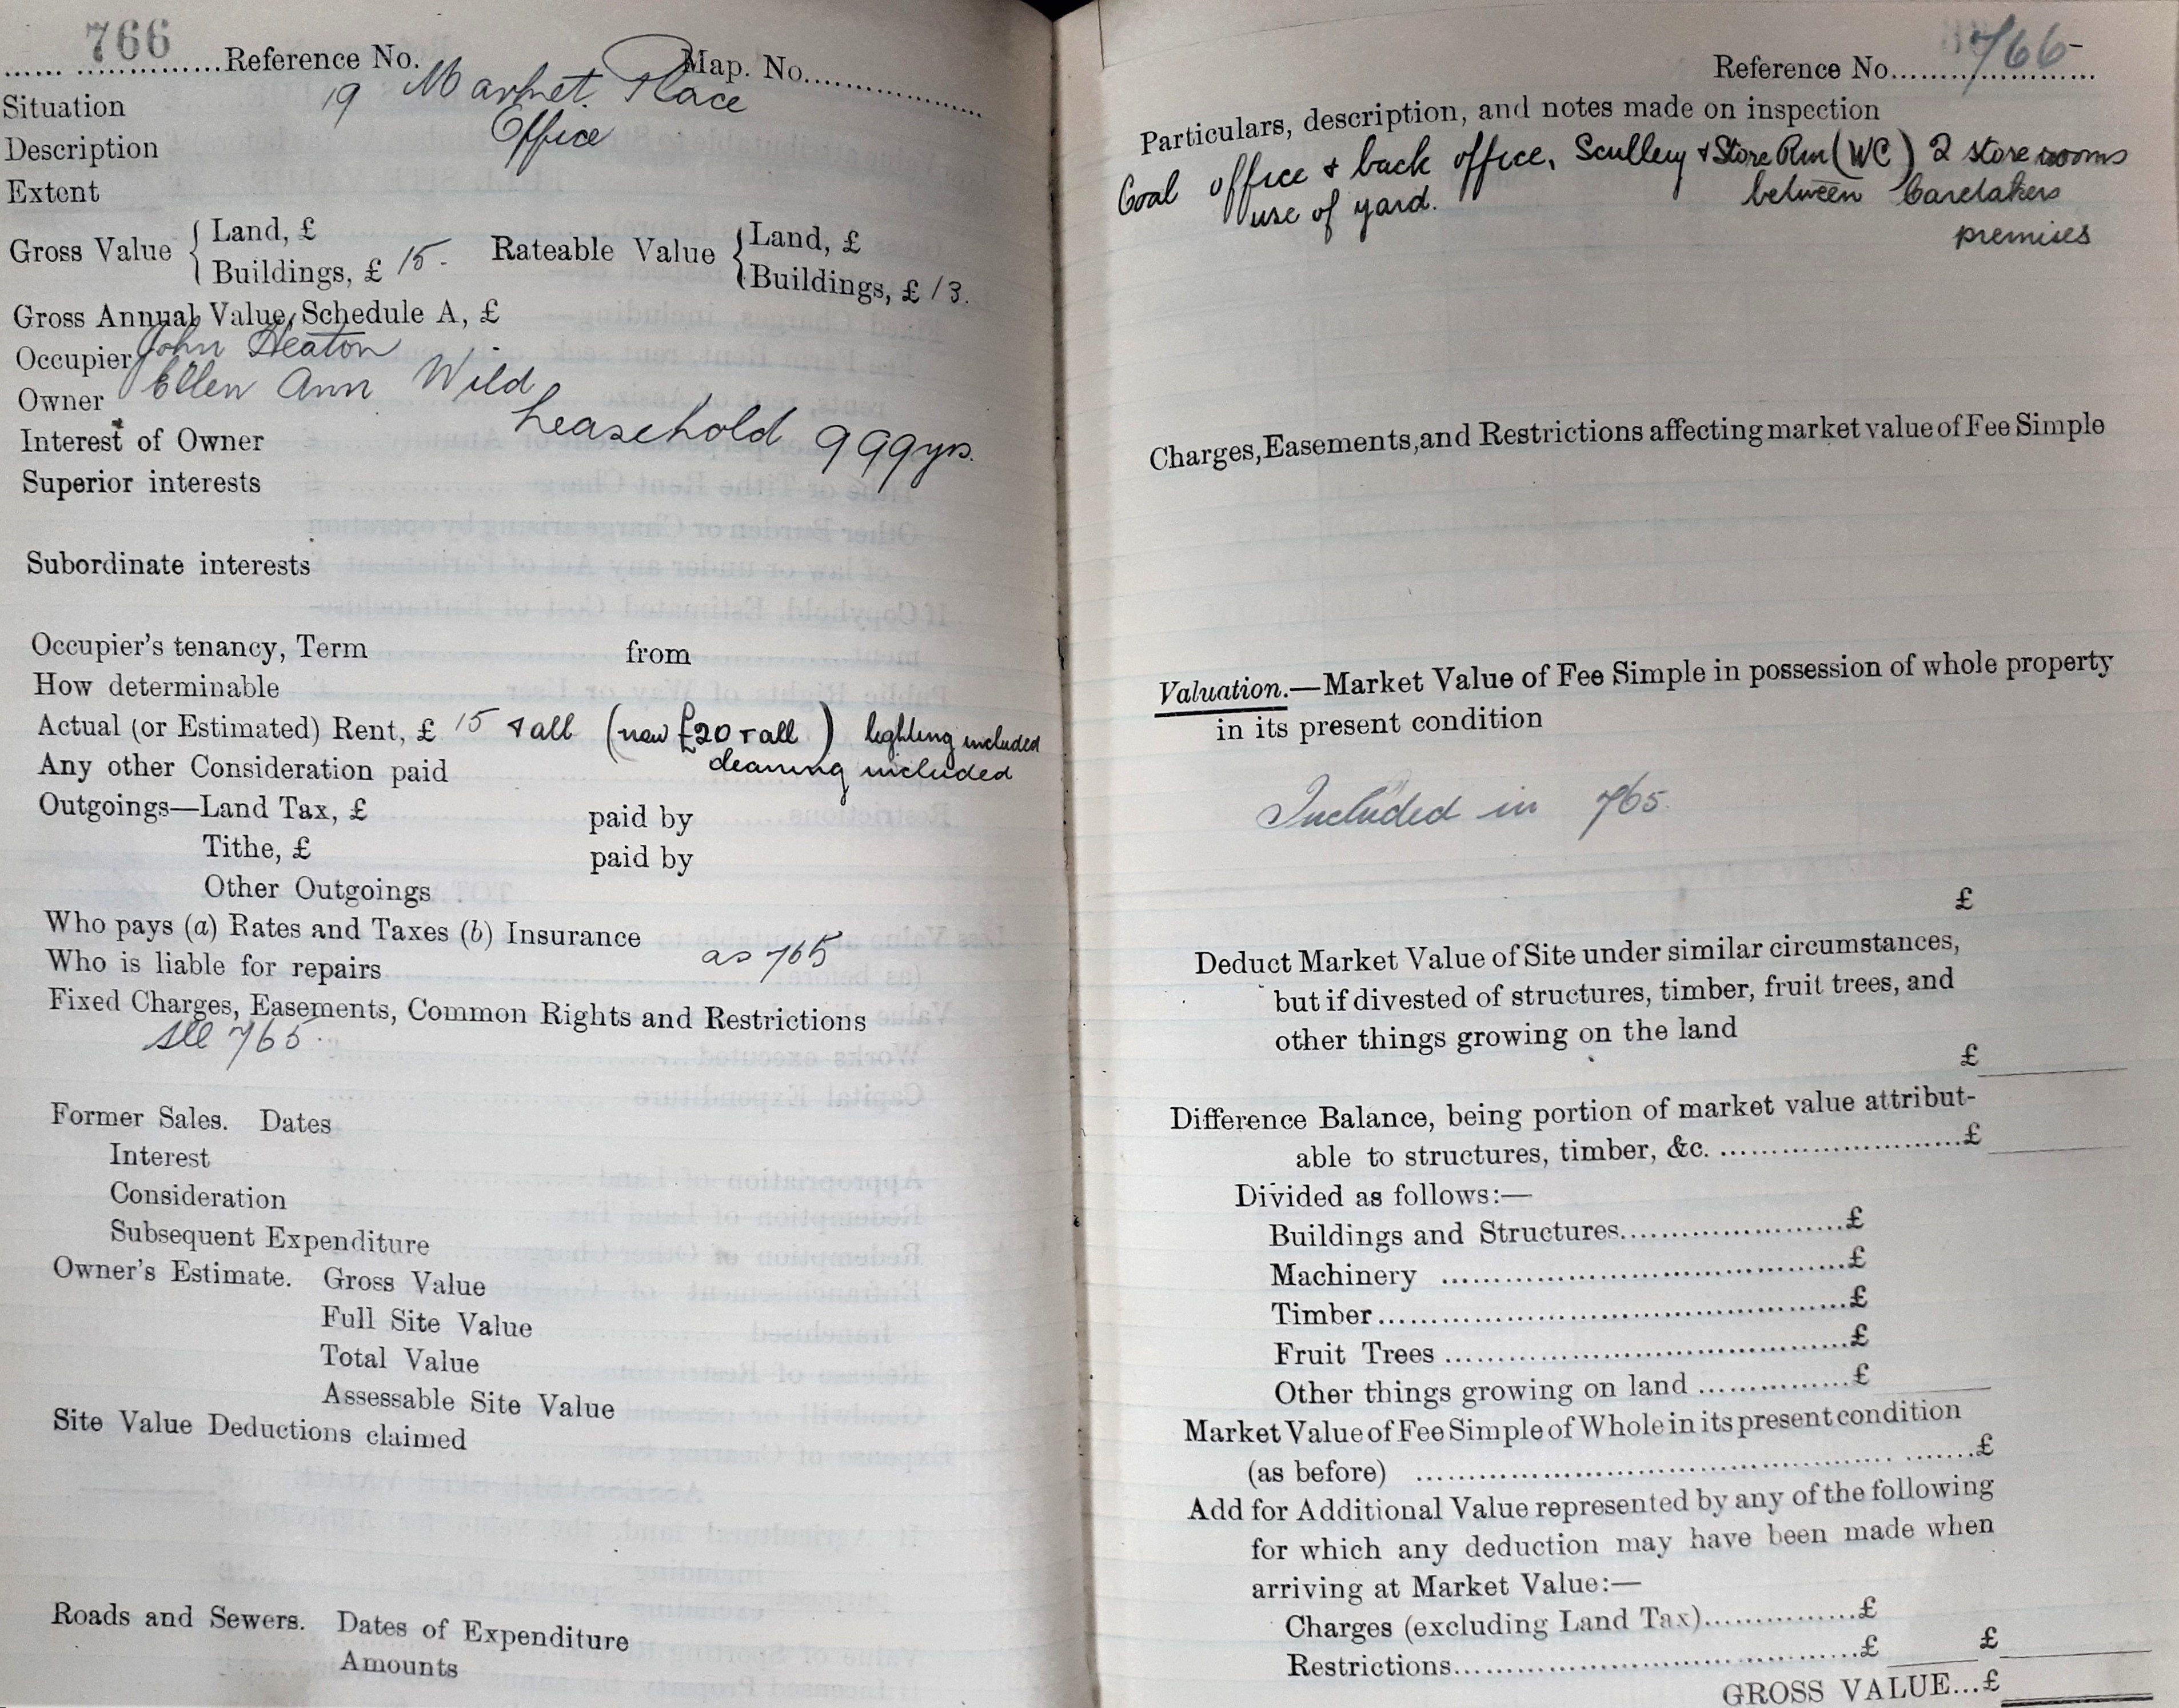 766 Reference No. Map. No.
Situation 19 Market Place
Description Office
Extent
Gross Value { Land, £ Rateable Value { Land, £
Buildings, £ 15. Buildings, £ 13.
Gross Annual Value, Schedule A, £
Occupier John Heaton
Owner Ellen Ann Wild
Interest of Owner Leasehold 999 yrs.
Superior interests
Subordinate interests
Occupier's tenancy, Term from
How determinable
Actual (or Estimated) Rent, £ 15 + all (now £20 + all) lighting included
Any other Consideration paid cleaning included
Outgoings—Land Tax, £ paid by
Tithe, £ paid by
Other Outgoings
Who pays (a) Rates and Taxes (b) Insurance
Who is liable for repairs as 765
Fixed Charges, Easements, Common Rights and Restrictions
see 765.
Former Sales. Dates
Interest
Consideration
Subsequent Expenditure
Owner's Estimate. Gross Value
Full Site Value
Total Value
Assessable Site Value
Site Value Deductions claimed
Roads and Sewers. Dates of Expenditure
Amounts
Reference No. 766
Particulars, description, and notes made on inspection
Coal office & back office, Scullery & Store Rm (WC) 2 store rooms
use of yard. between Caretakers
premises
Charges, Easements, and Restrictions affecting market value of Fee Simple
Valuation.—Market Value of Fee Simple in possession of whole property
in its present condition
Included in 765.
£
Deduct Market Value of Site under similar circumstances,
but if divested of structures, timber, fruit trees, and
other things growing on the land
£
Difference Balance, being portion of market value attribut-
able to structures, timber, &c. £
Divided as follows:—
Buildings and Structures £
Machinery £
Timber £
Fruit Trees £
Other things growing on land £
Market Value of Fee Simple of Whole in its present condition
(as before) £
Add for Additional Value represented by any of the following
for which any deduction may have been made when
arriving at Market Value:—
Charges (excluding Land Tax) £
Restrictions £ £
GROSS VALUE...£